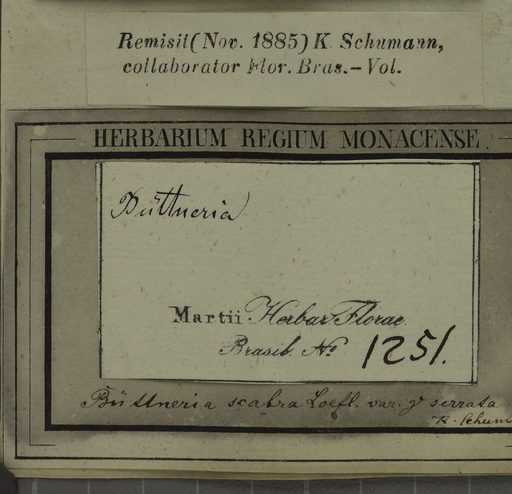 Remisit (Nov. 1885) K. Schumann,
collaborator Flor. Bras. – Vol.
HERBARIUM REGIUM MONACENSE.
Büttneria
Martii Herbar. Florae
Brasil. No
1251.
Büttneria scabra Loefl. var. γ serrata
K. Schum